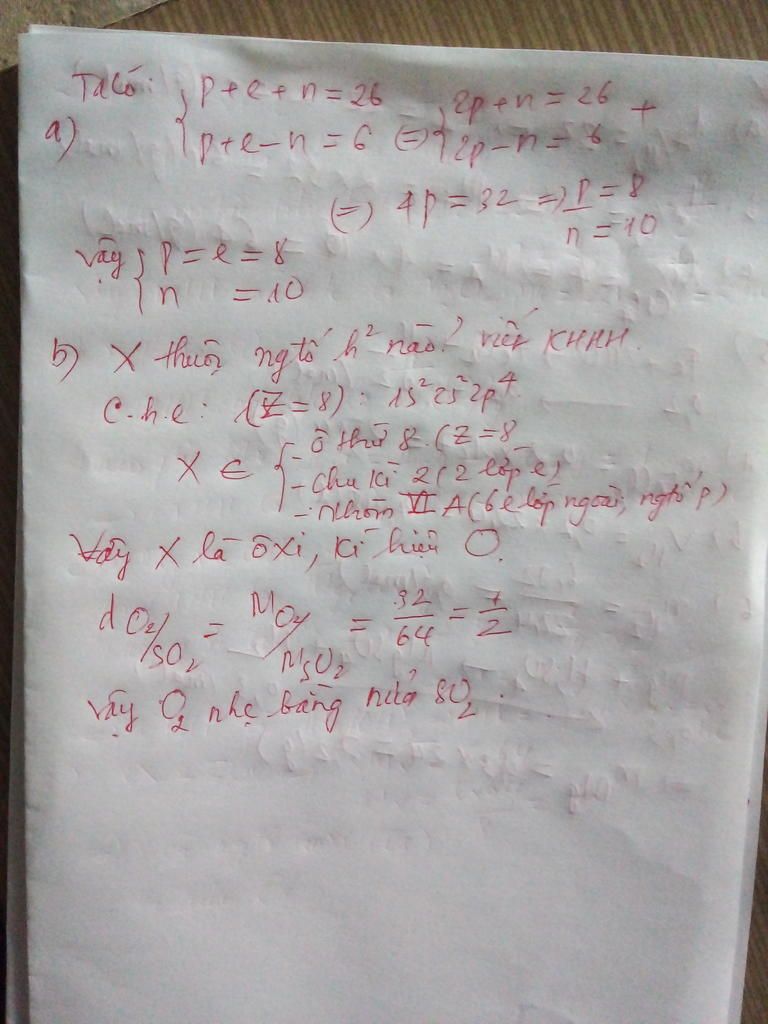 Ta có: { p+e+n = 26 { 2p+n = 26 +
a) { p+e-n = 6 (=) { 2p-n = 6
(=) 4p = 32 => p = 8
n = 10
Vậy { p = e = 8
{ n = 10
b) X thuộc ngtố h² nào? viết KHHH.
C.h.e: (Z=8): 1s²2s²2p⁴.
X ∈ { - ô thứ 8 (Z=8
- Chu kì 2 (2 lớp e)
- Nhóm VI A (6e lớp ngoài, ngtố p)
Vậy X là ôxi, kí hiệu O.
d O₂/SO₂ = M O₂/M SO₂ = 32/64 = 1/2
Vậy O₂ nhẹ bằng nửa SO₂.